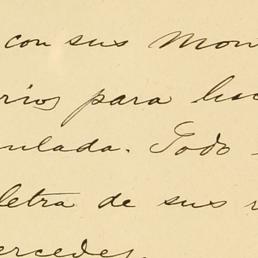 con sus Mon
rios para
ulada. Todo
letra de sus
ercedes